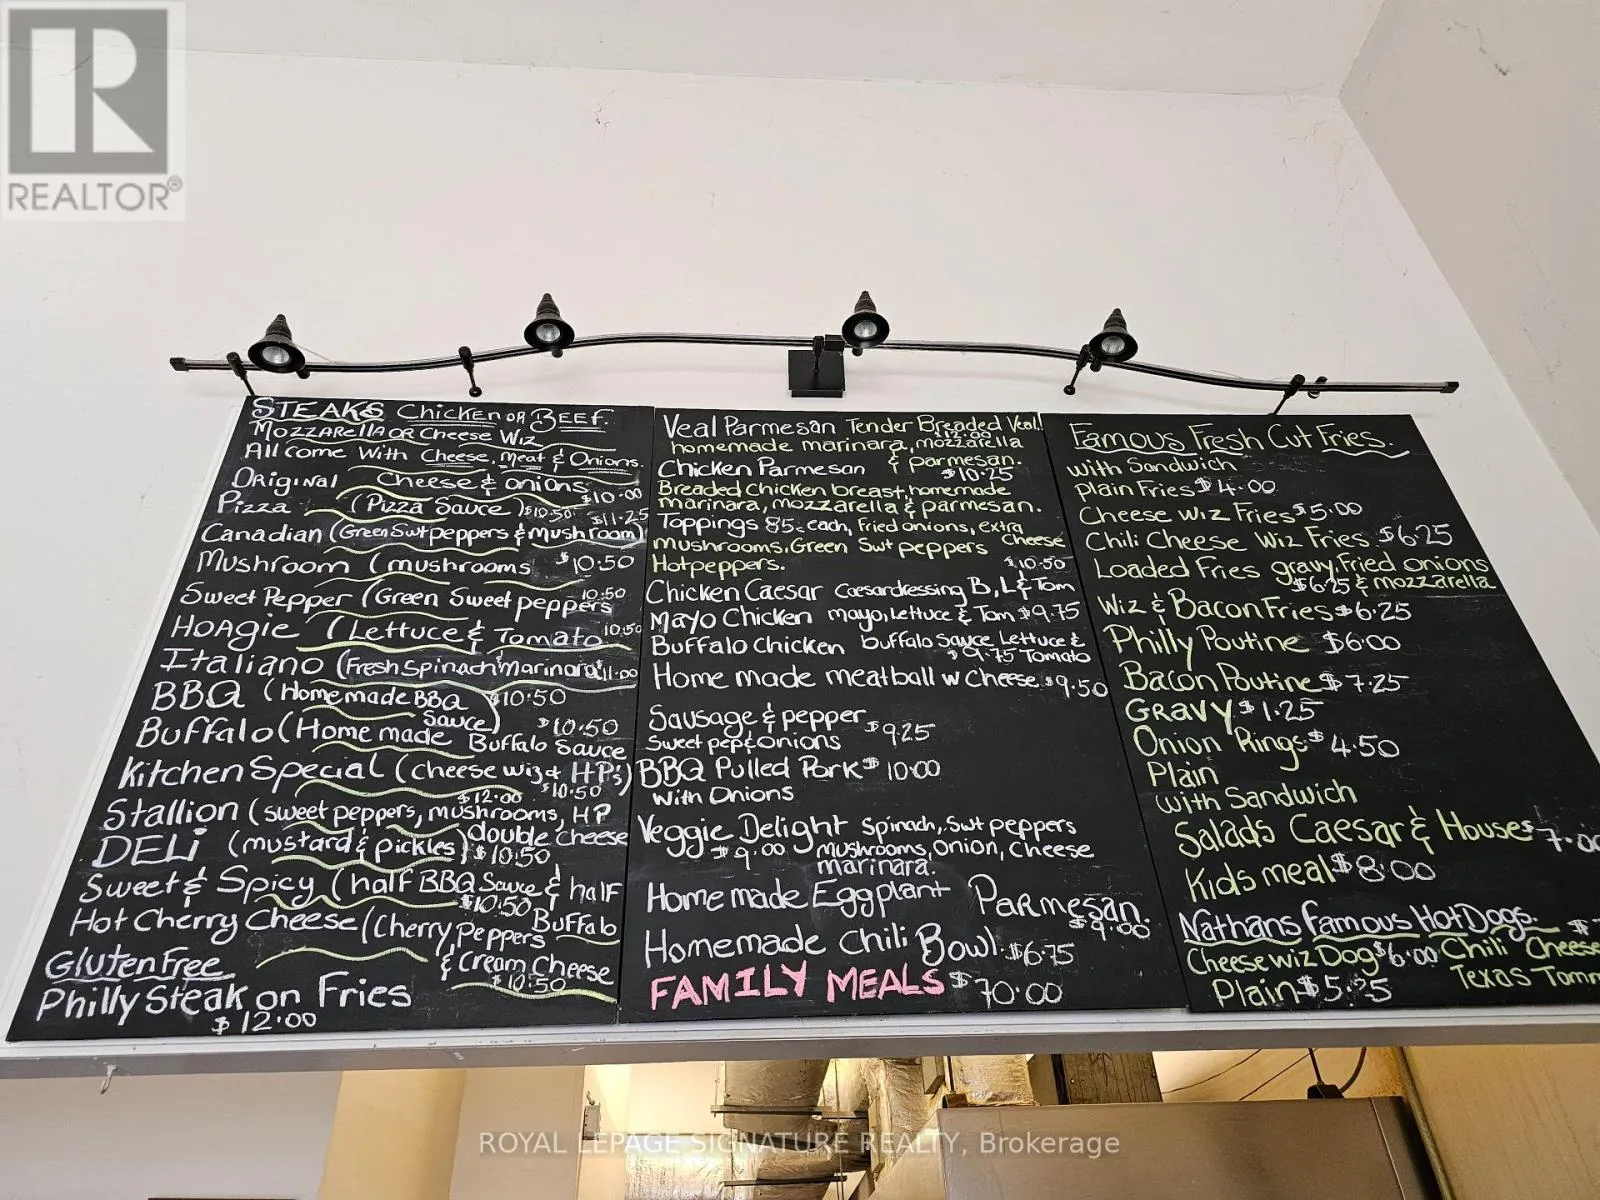 REALTOR®
STEAKS Chicken OR BEEF.
MOZZARELLA OR Cheese Wiz
All come With Cheese, Meat & Onions.
Original Cheese & onions $10.00
Pizza (Pizza Sauce) $10.50 $11.25
Canadian (Green Swt peppers & mushroom)
Mushroom (mushrooms $10.50
Sweet Pepper (Green Sweet peppers 10.50
HOAGIE (Lettuce & Tomato 10.50
Italiano (Fresh Spinach Marinara $11.00
BBQ (Homemade BBQ Sauce) $10.50
Buffalo (Home made Buffalo Sauce $10.50
Kitchen Special (Cheese wiz & H.P's) $10.50
$12.00
Stallion (sweet peppers, mushrooms, HP
double cheese
DELi (mustard & pickles) $10.50
Sweet & Spicy (half BBQ Sauce & half
$10.50 Buffalo
Hot Cherry Cheese (Cherry peppers
& Cream Cheese
$10.50
Gluten Free
Philly Steak on Fries
$12.00
Veal Parmesan Tender Breaded Veal!
homemade marinara, mozzarella
& parmesan.
Chicken Parmesan $10.25
Breaded Chicken breast, homemade
marinara, mozzarella & parmesan.
Toppings 85¢ each, fried onions, extra
Cheese
mushrooms, Green Swt peppers
Hot peppers.
$10.50
Chicken Caesar Caesar dressing B, L & Tom
Mayo Chicken mayo, lettuce & Tom $9.75
Buffalo Chicken buffalo sauce, Lettuce &
$9.75 Tomato
Home made meatball w Cheese $9.50
Sausage & pepper $9.25
Sweet pep & Onions
BBQ Pulled Pork $10.00
With Onions
Veggie Delight Spinach, Swt peppers
$9.00 mushrooms, onion, cheese
marinara.
Home made Eggplant Parmesan.
$9.00
Homemade Chili Bowl $6.75
FAMILY MEALS $70.00
Famous Fresh Cut Fries.
with Sandwich
Plain Fries $4.00
Cheese Wiz Fries $5.00
Chili Cheese Wiz Fries $6.25
Loaded Fries gravy, fried onions
$6.25 & mozzarella
Wiz & Bacon Fries $6.25
Philly Poutine $6.00
Bacon Poutine $7.25
GRAVY $1.25
Onion Rings $4.50
Plain
with Sandwich
Salads Caesar & House $7.00
Kids meal $8.00
Nathans Famous Hot Dogs.
Cheese wiz Dog $6.00 Chili Cheese
Plain $5.25 Texas Tomm
ROYAL LEPAGE SIGNATURE REALTY, Brokerage